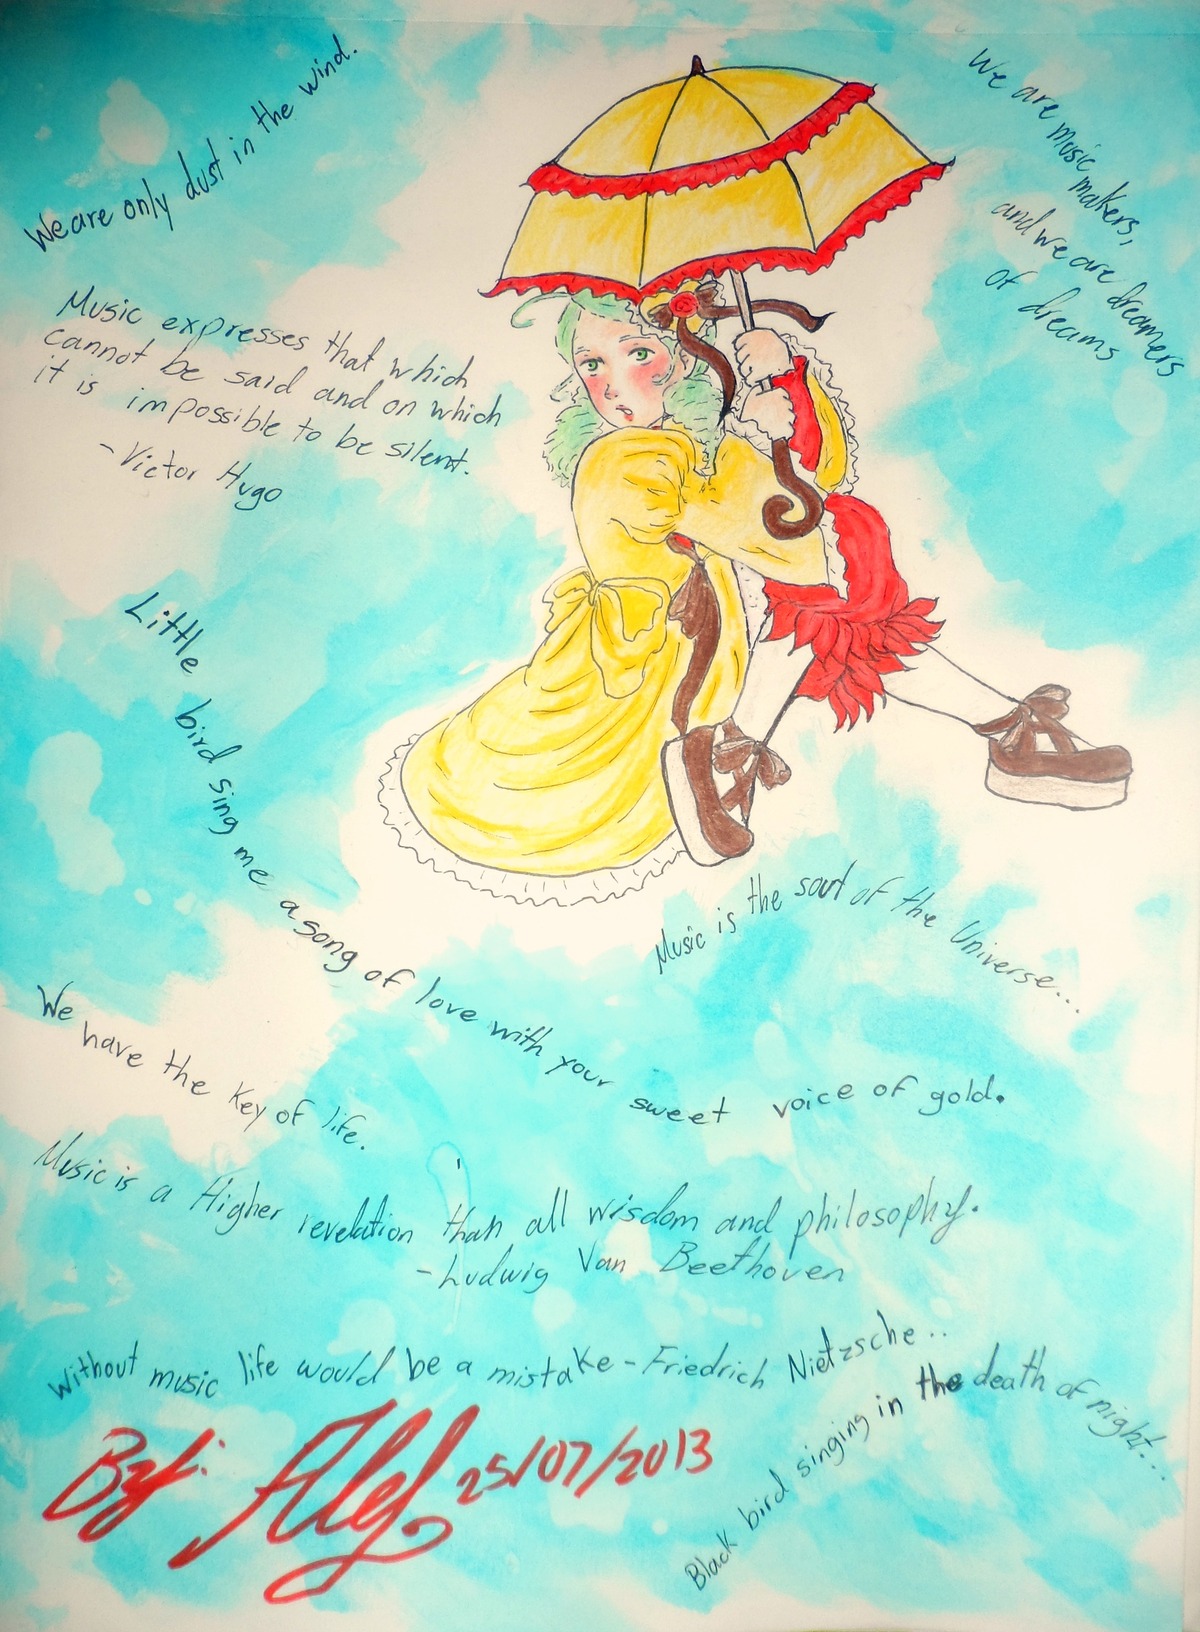 We are only dust in the wind.
We are music
makers,
and we are dreamers
of dreams
Music expresses that which
cannot be said and on which
it is impossible to be silent.
-Victor Hugo
Little bird sing me a song of love with your sweet voice of gold.
Music is the soul of the Universe...
We have the key of life.
Music is a Higher revelation than all wisdom and philosophy.
-Ludwig Van Beethoven
Without music life would be a mistake - Friedrich Nietzsche..
Black bird singing in the death of night...
25/07/2013